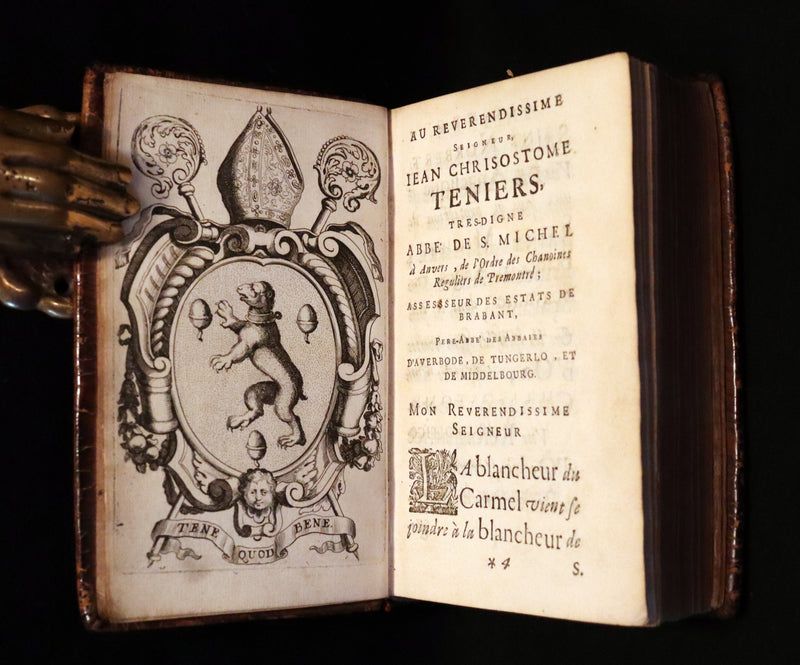 TENE QUOD BENE.
AU REVERENDISSIME
SEIGNEUR,
IEAN CHRISOSTOME
TENIERS,
TRES-DIGNE
ABBE' DE S. MICHEL
à Anvers, de l'Ordre des Chanoines
Reguliers de Premontré;
ASSESSEUR DES ESTATS DE
BRABANT,
PERE-ABBE' DES ABBAIES
D'AVERBODE, DE TUNGERLO, ET
DE MIDDELBOURG.
MON REVERENDISSIME
SEIGNEUR
LA blancheur du
Carmel vient se
joindre à la blancheur de
*4
S.